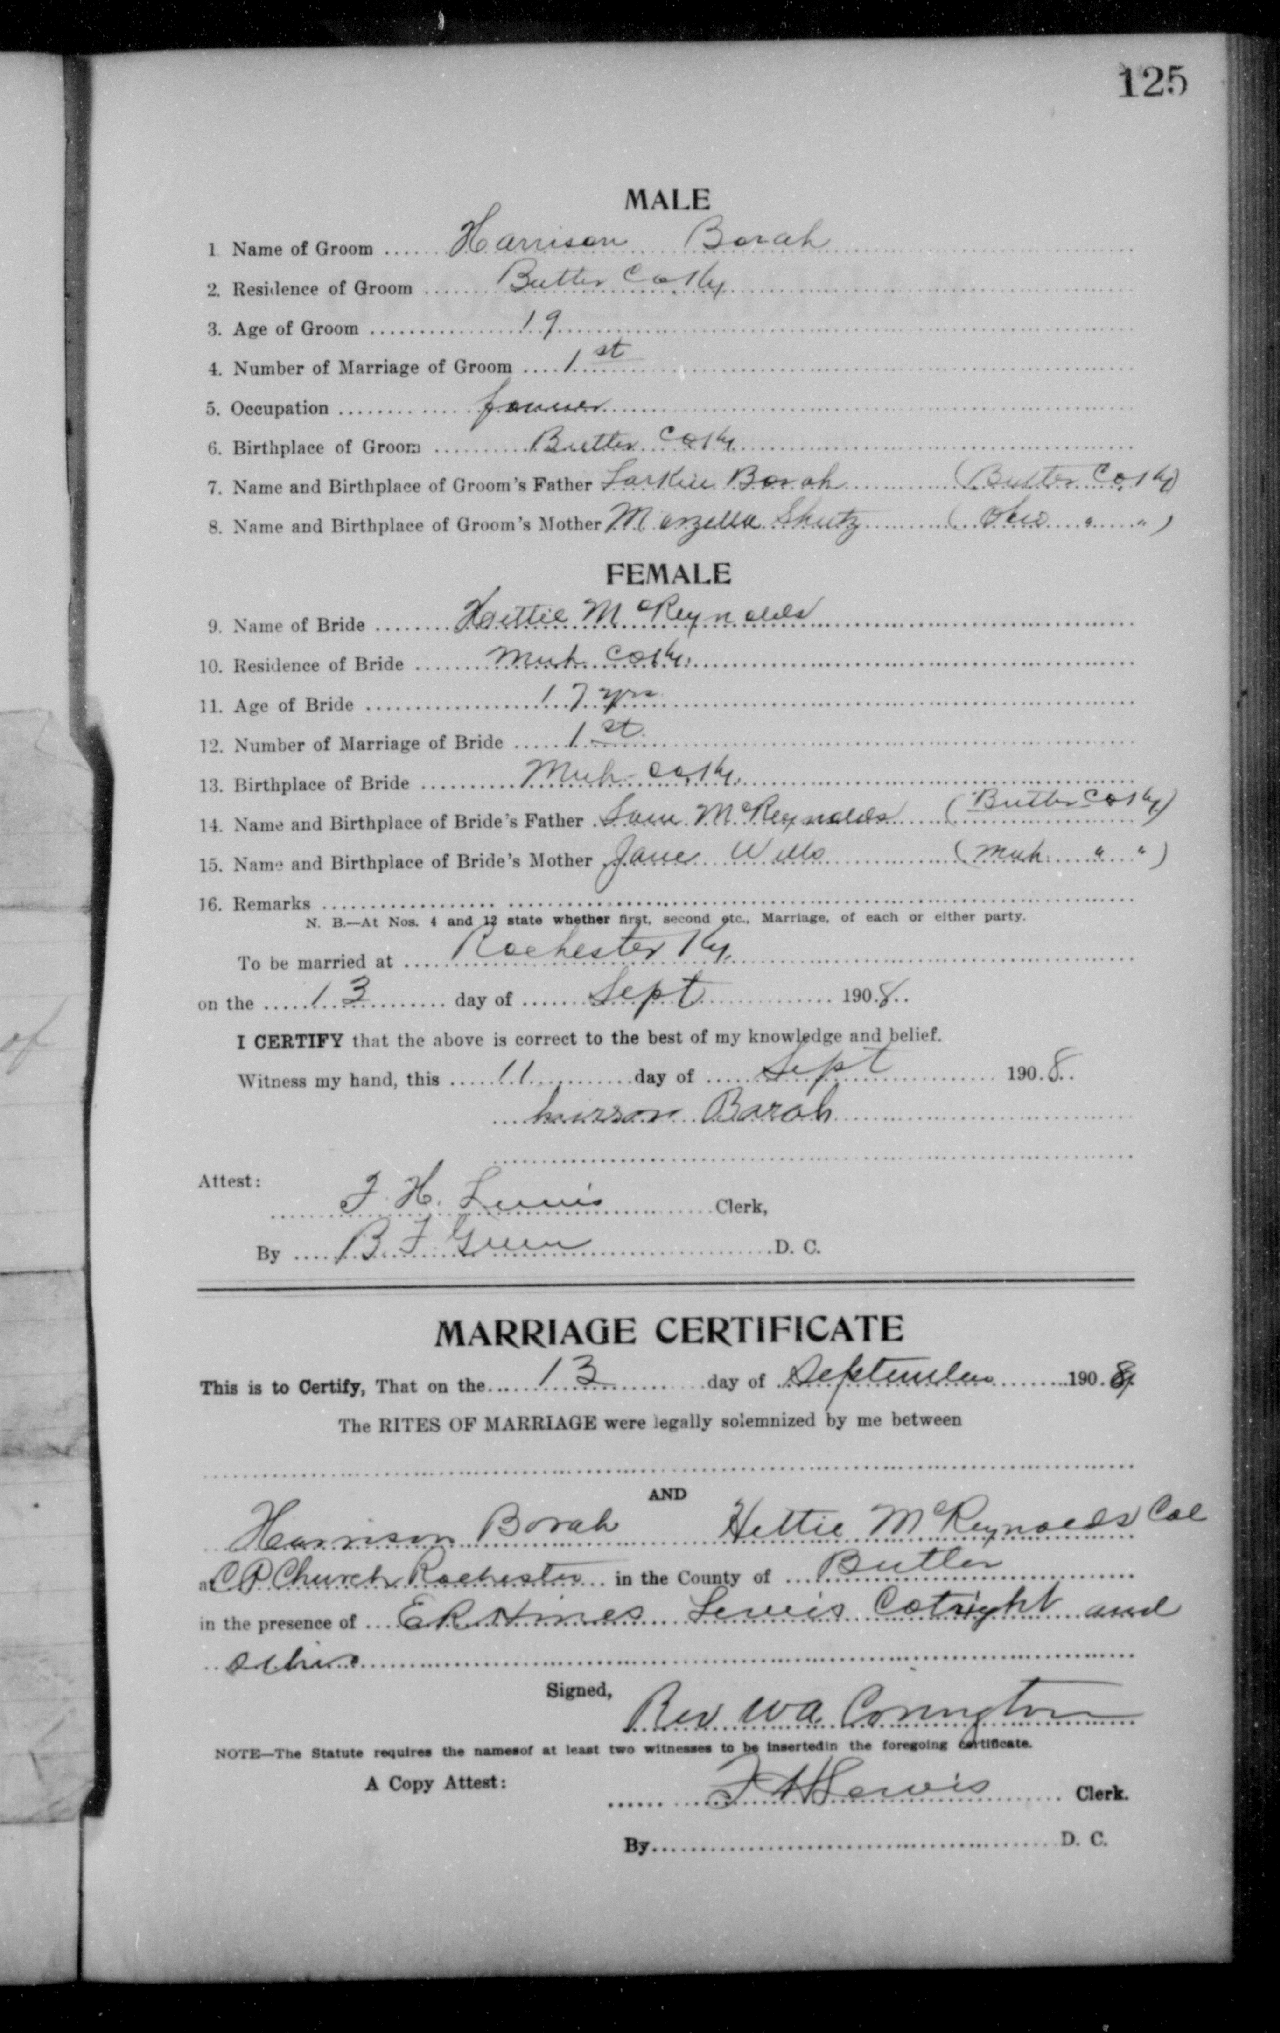 125
MALE
1 Name of Groom Harrison Borah
2. Residence of Groom Butler Co Ky
3. Age of Groom 19
4. Number of Marriage of Groom 1st
5. Occupation farmer
6. Birthplace of Groom Butler Co Ky
7. Name and Birthplace of Groom's Father Larkin Borah (Butler Co Ky)
8. Name and Birthplace of Groom's Mother Marzella Shutz (Ohio " ")
FEMALE
9. Name of Bride Hettie McReynolds
10. Residence of Bride Muh Co Ky.
11. Age of Bride 17 yrs
12. Number of Marriage of Bride 1st
13. Birthplace of Bride Muh Co Ky.
14. Name and Birthplace of Bride's Father Sam McReynolds (Butler Co Ky)
15. Name and Birthplace of Bride's Mother Jane Wells (Muh " ")
16. Remarks
N. B.—At Nos. 4 and 12 state whether first, second etc., Marriage, of each or either party.
To be married at Rochester Ky.
on the 13 day of Sept 1908
I CERTIFY that the above is correct to the best of my knowledge and belief.
Witness my hand, this 11 day of Sept 1908
Borah
Attest:
F. H. Lewis Clerk,
By B F Green D. C.
MARRIAGE CERTIFICATE
This is to Certify, That on the 13 day of September 1908
The RITES OF MARRIAGE were legally solemnized by me between
AND
Harrison Borah Hettie McReynolds Col
at C P Church Rochester in the County of Butler
in the presence of E R Hines Lewis Cotright and
Signed,
Rev W A Covington
NOTE—The Statute requires the namesof at least two witnesses to be insertedin the foregoing certificate.
A Copy Attest:
F H Lewis Clerk.
By D. C.
of